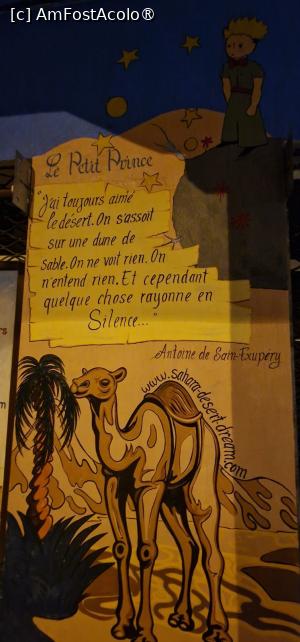 [c] AmFostAcolo®
Le Petit Prince
"J'ai toujours aimé
le désert. On s'assoit
sur une dune de
sable. On ne voit rien. On
n'entend rien. Et cependant
quelque chose rayonne en
Silence..."
Antoine de Sain-Exupéry
www.sahara-desert.dream.com